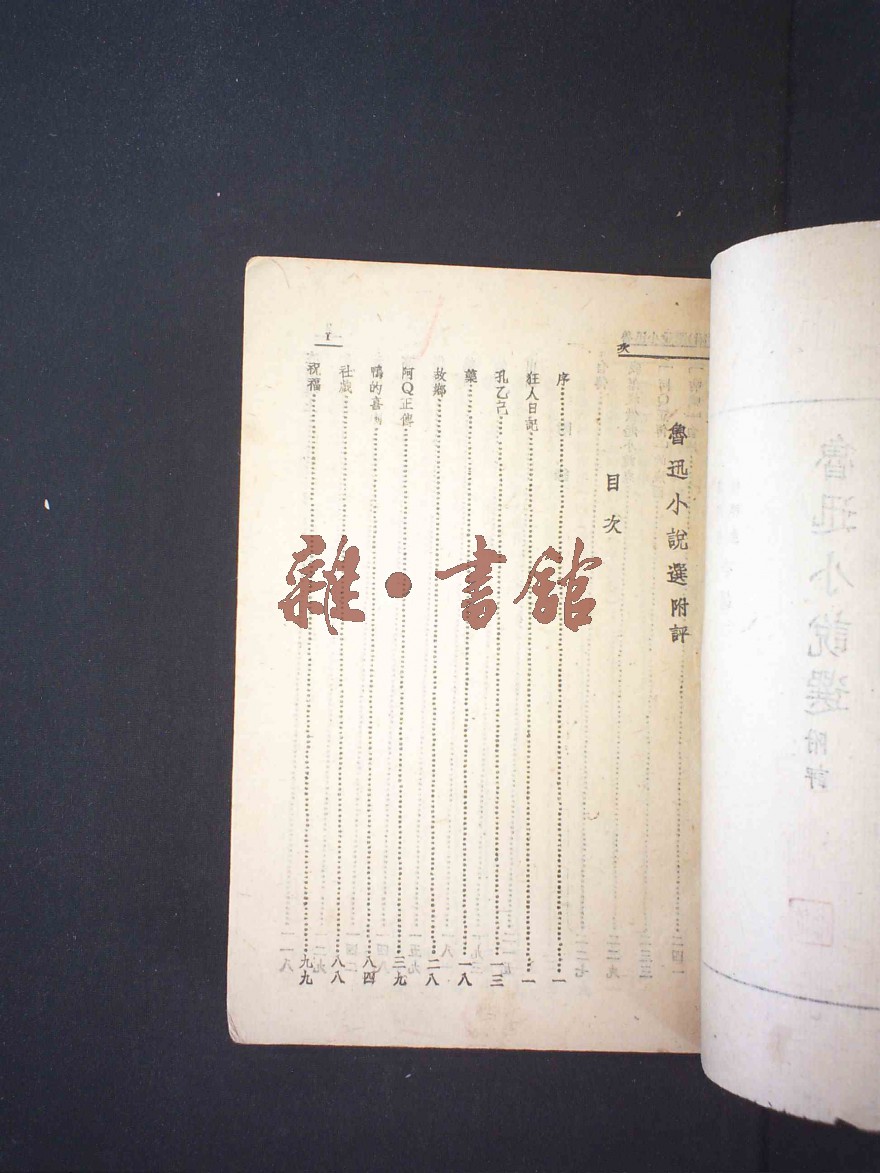 魯迅小說選附評
目次
序……一
狂人日記……一
孔乙己……一三
藥……一八
故鄉……二八
阿Q正傳……三九
鴨的喜劇……八四
社戲……八八
祝福……九九
次
1
雜·書館
魯迅小說選
附評